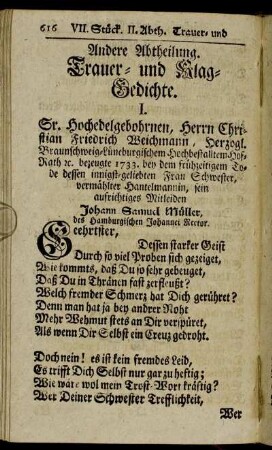 616 VII. Stück. II. Abth. Trauer- und
Andere Abtheilung.
Trauer- und Klag-
Gedichte.
I.
Sr. Hochedelgebohrnen, Herrn Chri-
stian Friedrich Weichmann, Herzogl.
Braunschweig-Lüneburgischem Hochbestalltem Hof-
Rath ꝛc. bezeugte 1733. bey dem frühzeitigem To-
de dessen innigst-geliebten Frau Schwester,
vermählter Hantelmannin, sein
aufrichtiges Mitleiden
Johann Samuel Müller,
des Hamburgischen Johannei Rector.
Geehrtster,
Dessen starker Geist
Durch so viel Proben sich gezeiget,
Wie kommts, daß Du so sehr gebeuget,
Daß Du in Thränen fast zerfleußt?
Welch fremder Schmerz hat Dich gerühret?
Denn man hat ja bey andrer Noht
Mehr Wehmut stets an Dir verspüret,
Als wenn Dir Selbst ein Creuz gedroht.
Doch nein! es ist kein fremdes Leid,
Es trifft Dich Selbst nur gar zu heftig;
Wie wäre wol mein Trost-Wort kräftig?
Wer Deiner Schwester Trefflichkeit,
Wer